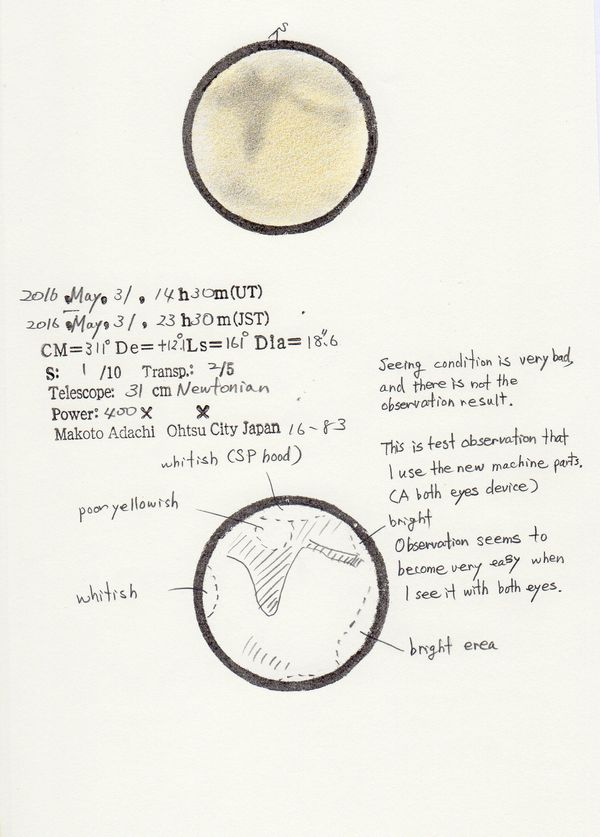 S
2016 May. 31, 14h30m(UT)
2016 May. 31, 23h30m(JST)
CM=311° De=+12.1° Ls=161° Dia=18.6"
S: 1/10 Transp.: 2/5
Telescope: 31 cm Newtonian
Power: 400× ×
Makoto Adachi Ohtsu City Japan 16-83
Seeing condition is very bad,
and there is not the
observation result.
This is test observation that
I use the new machine parts.
(A both eyes device)
Observation seems to
become very easy when
I see it with both eyes.
whitish (SP hood)
poor yellowish
bright
whitish
bright erea